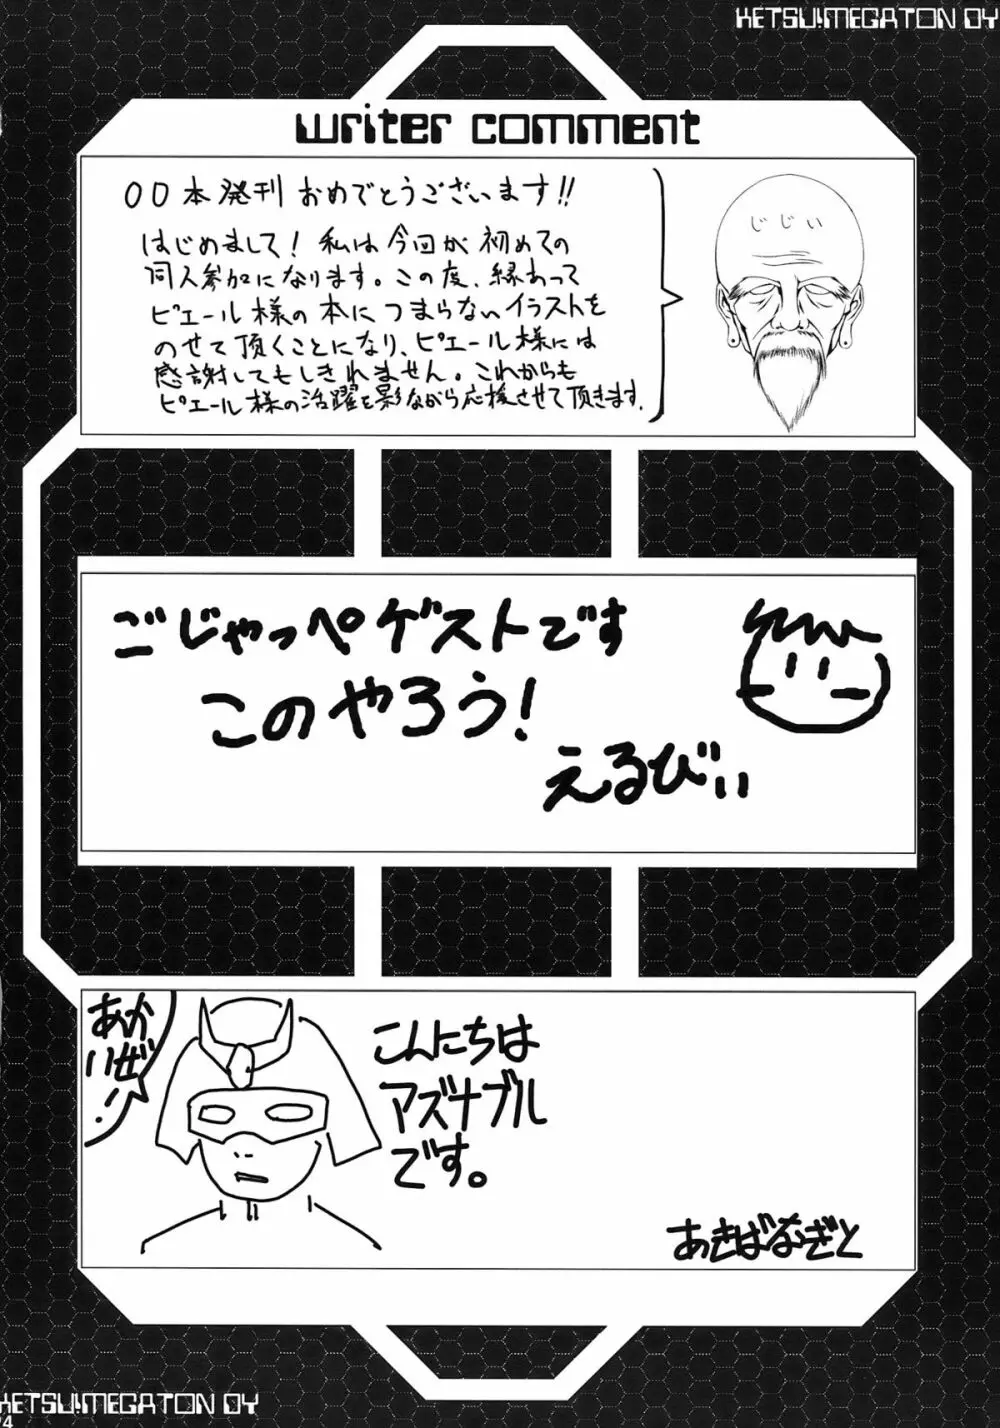 KETSU!MEGATON 0Y
writer comment
００本発刊 おめでとうございます!!
はじめまして! 私は今回が初めての
同人参加になります。この度、縁あって
ピエール様の本につまらないイラストを
のせて頂くことになり、ピエール様には
感謝してもしきれません。これからも
ピエール様の活躍を影ながら応援させて頂きます。
じじい
ごじゃっぺゲストです
このやろう!
えるびぃ
あか
いぜ!
こんにちは
アズナブル
です。
あきばなぎと
KETSU!MEGATON 0Y
24